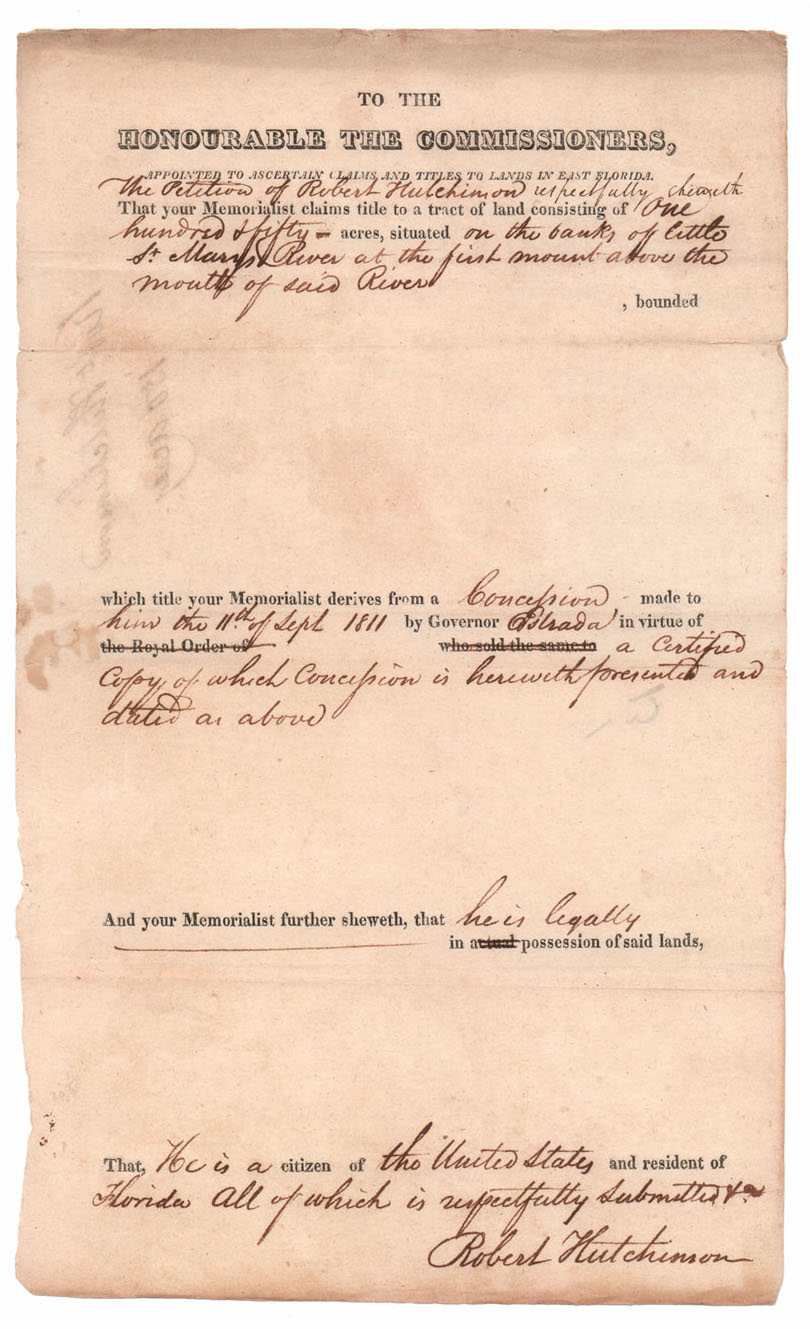 TO THE
HONOURABLE THE COMMISSIONERS,
APPOINTED TO ASCERTAIN CLAIMS AND TITLES TO LANDS IN EAST FLORIDA.
The Petition of Robert Hutchinson respectfully sheweth
That your Memorialist claims title to a tract of land consisting of One
hundred & fifty — acres, situated on the banks of little
St Marys River at the first mount above the
mouth of said River
, bounded
which title your Memorialist derives from a Concession made to
him the 11th of Sept 1811 by Governor Estrada in virtue of
the Royal Order of who sold the same to a Certified
Copy of which Concession is herewith presented and
dated as above
And your Memorialist further sheweth, that he is legally
in actual possession of said lands,
That, He is a citizen of the United States and resident of
Florida All of which is respectfully submitted &c
Robert Hutchinson